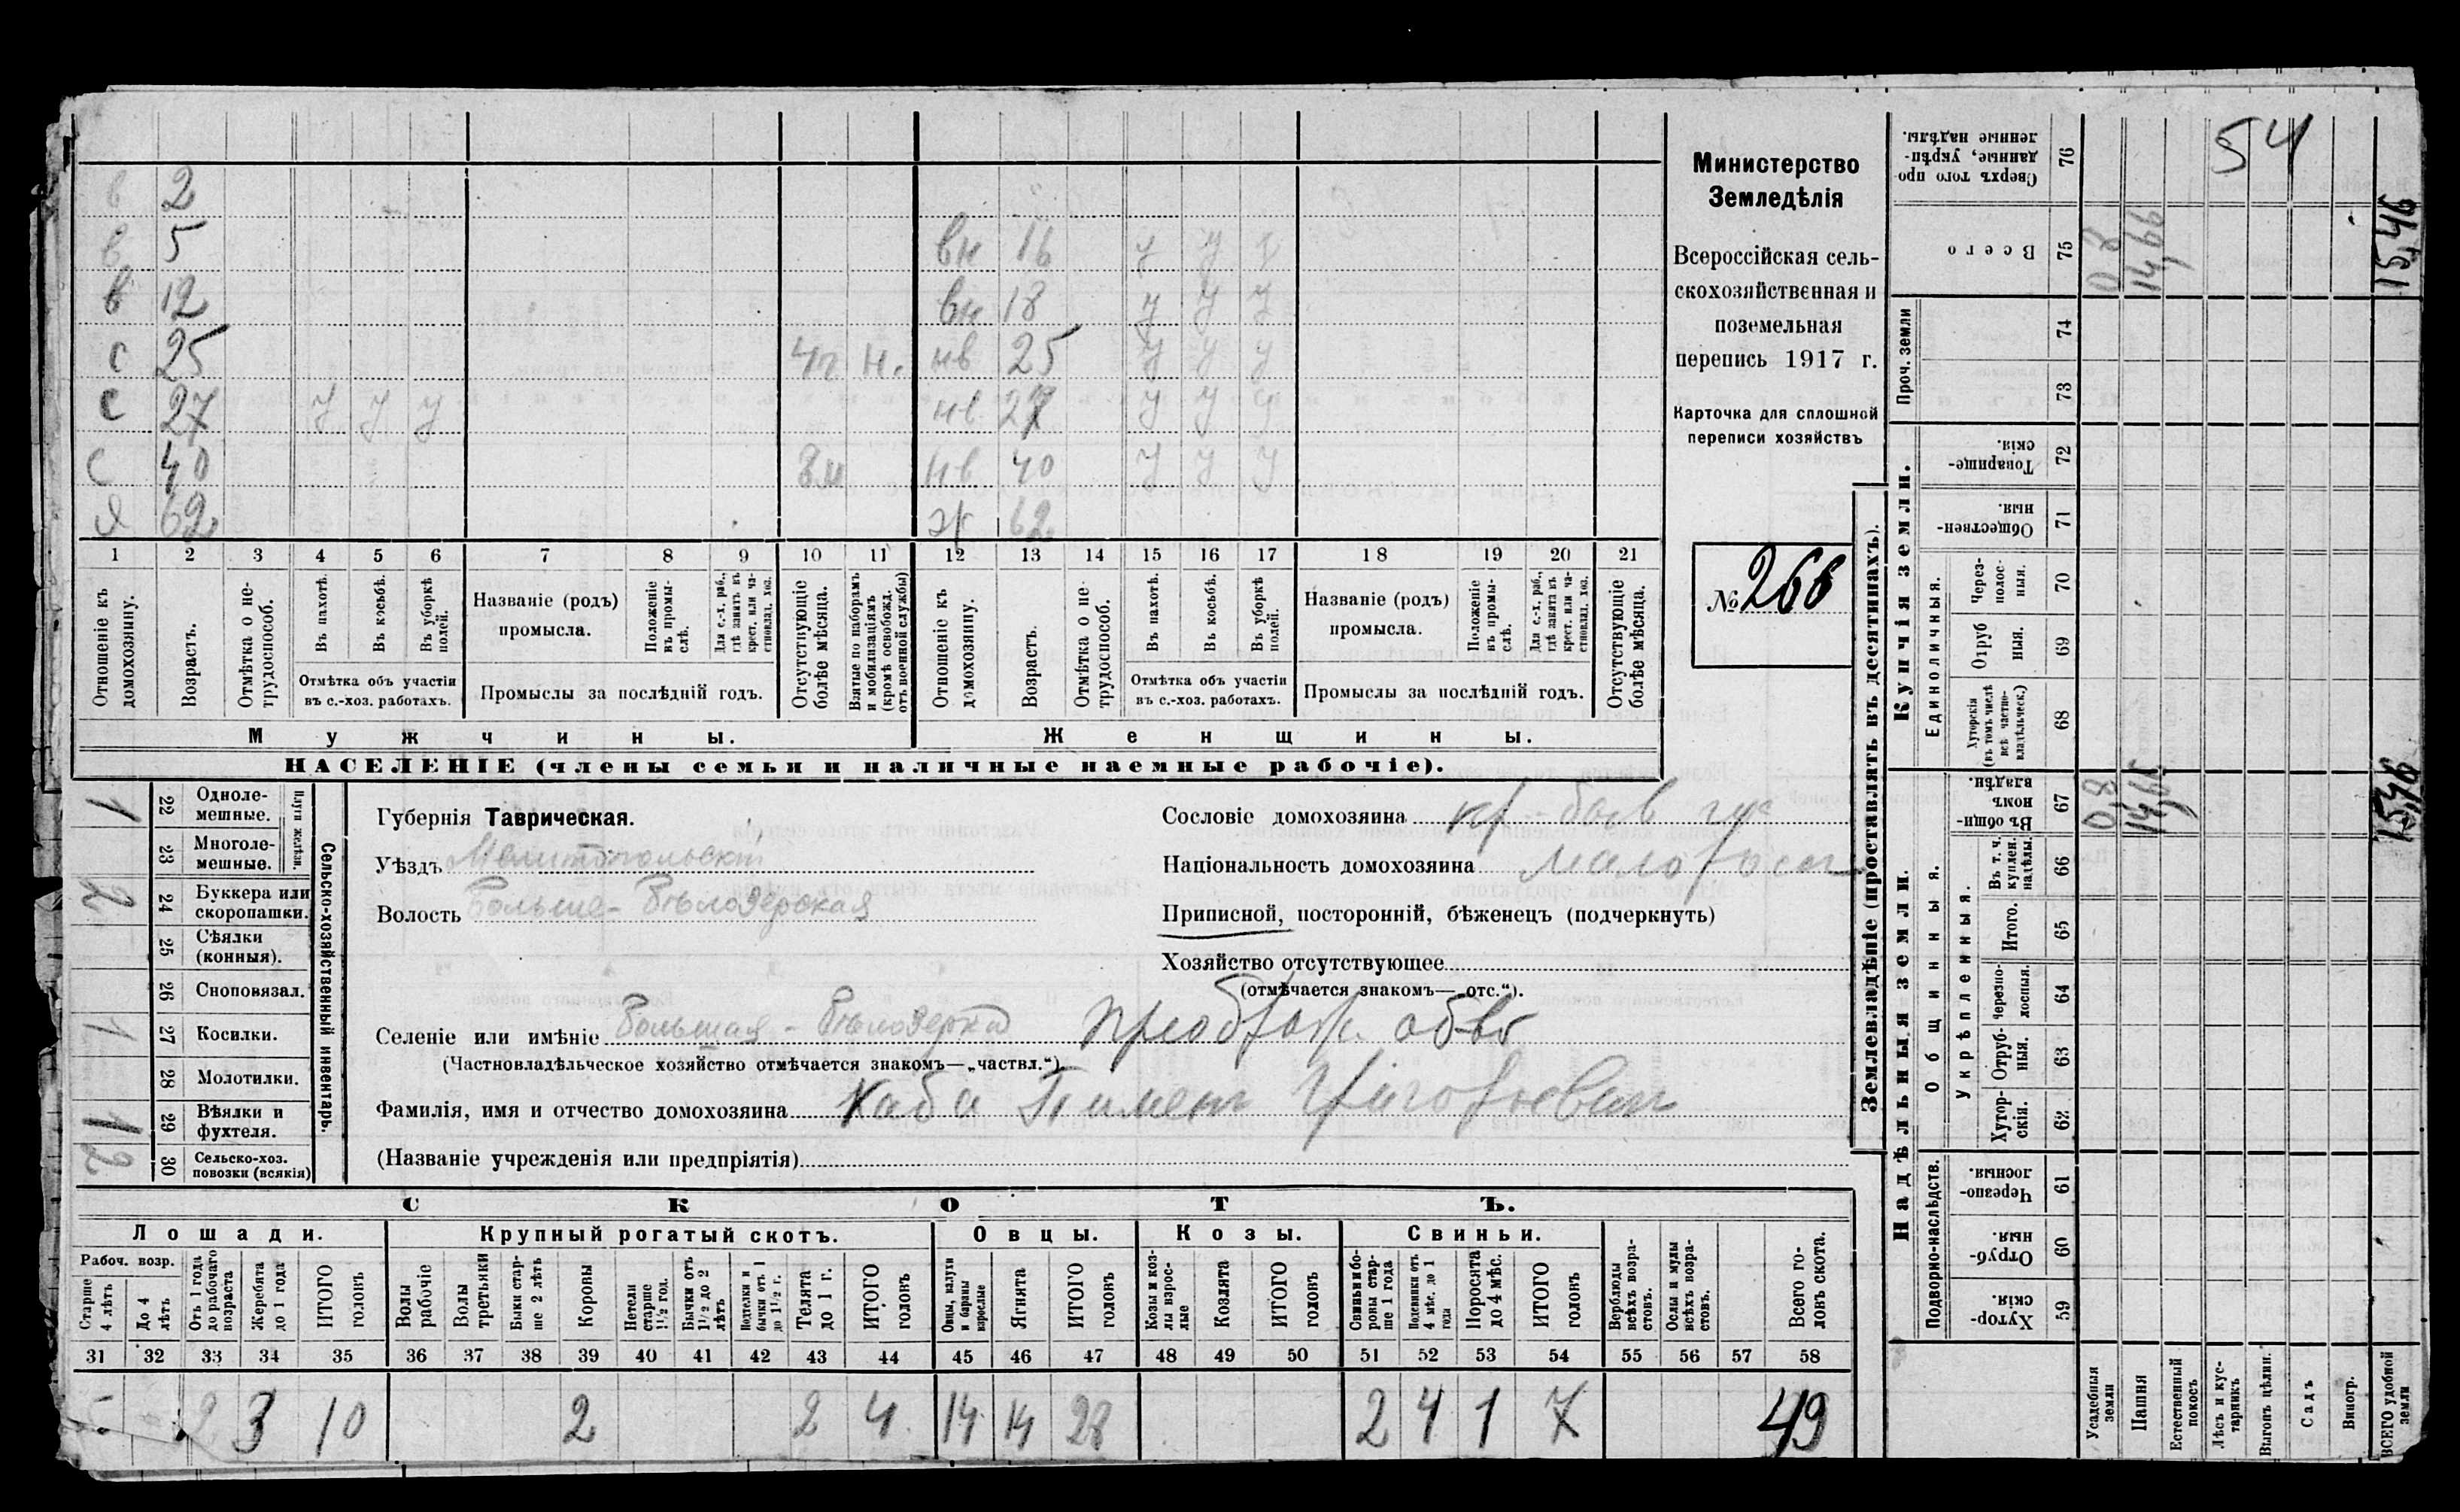 в 2
в 5 вн 16 у у у
в 12 вн 18 у у у
с 25 4г н. нв 25 у у у
с 27 у у у нв 27 у у у
с 40 8м нв 40 у у у
Я 62 ж 62
1 2 3 4 5 6 7 8 9 10 11 12 13 14 15 16 17 18 19 20 21
Отношеніе къ домохозяину.
Возрастъ.
Отмѣтка о не-трудоспособ.
Въ пахотѣ.
Въ косьбѣ.
Въ уборкѣ полей.
Отмѣтка объ участіи
въ с.-хоз. работахъ.
Названіе (родъ)
промысла.
Положеніе въ промы-слѣ.
Для с.-х. раб., гдѣ занятъ въ крест. или ча-стновлад. хоз.
Промыслы за послѣдній годъ.
Отсутствующіе болѣе мѣсяца.
Взятые по наборамъ и мобилизаціямъ (кромѣ освобожд. отъ военной службы)
Отношеніе къ домохозяину.
Возрастъ.
Отмѣтка о не-трудоспособ.
Въ пахотѣ.
Въ косьбѣ.
Въ уборкѣ полей.
Отмѣтка объ участіи
въ с.-хоз. работахъ.
Названіе (родъ)
промысла.
Положеніе въ промы-слѣ.
Для с.-х. раб., гдѣ занята въ крест. или ча-стновлад. хоз.
Промыслы за послѣдній годъ.
Отсутствующіе болѣе мѣсяца.
Мужчины.
Женщины.
НАСЕЛЕНІЕ (члены семьи и наличные наемные рабочіе).
Министерство
Земледѣлія
Всероссійская сель-
скохозяйственная и
поземельная
перепись 1917 г.
Карточка для сплошной
переписи хозяйствъ
№ 266
Сельско-хозяйственный инвентарь.
Плуги желѣзн.
22 Однолемешные. 1
23 Многолемешные.
24 Буккера или скоропашки. 2
25 Сѣялки (конныя).
26 Сноповязал.
27 Косилки. 1
28 Молотилки.
29 Вѣялки и фухтеля. 1
30 Сельско-хоз. повозки (всякія) 2
Губернія Таврическая.
Уѣздъ Мелитопольскій
Волость Больше-Бѣлозерская
Сословіе домохозяина
Національность домохозяина малоросс
Приписной, посторонній, бѣженецъ (подчеркнуть)
Хозяйство отсутствующее
(отмѣчается знакомъ—„отс.“).
Селеніе или имѣніе Большая-Бѣлозерка Преображ. общ
(Частновладѣльческое хозяйство отмѣчается знакомъ—„частвл.“)
Фамилія, имя и отчество домохозяина Хаба Пимен Григорьевич
(Названіе учрежденія или предпріятія)
СКОТЪ.
Лошади. Крупный рогатый скотъ. Овцы. Козы. Свиньи.
Рабоч. возр.
Старше 4 лѣтъ
До 4 лѣтъ
Отъ 1 года до рабочаго возраста
Жеребята до 1 года
ИТОГО головъ
Волы рабочіе
Волы третьяки
Быки стар-ше 2 лѣтъ
Коровы
Нетели старше 1½ год.
Бычки отъ 1½ до 2 лѣтъ
Нетелки и бычки отъ 1 до 1½ г.
Телята до 1 г.
ИТОГО головъ
Овцы, валухи и бараны взрослые
Ягнята
ИТОГО головъ
Козы и коз-лы взрос-лые
Козлята
ИТОГО головъ
Свиньи и бо-ровы стар-ше 1 года
Подсвинки отъ 4 мѣс. до 1 года
Поросята до 4 мѣс.
ИТОГО головъ
Верблюды всѣхъ возра-стовъ.
Ослы и мулы всѣхъ возра-стовъ.
Всего го-ловъ скота.
31 32 33 34 35 36 37 38 39 40 41 42 43 44 45 46 47 48 49 50 51 52 53 54 55 56 57 58
5 - 2 3 10 2 2 4 14 14 28 2 4 1 7 49
Землевладѣніе (проставлять въ десятинахъ).
Надѣльныя земли.
Купчія земли.
Подворно-наслѣдств.
Общинныя.
Укрѣпленныя.
Единоличныя.
Проч. земли
54
76 Сверхъ того про-данные, укрѣп-ленные надѣлы.
75 Всего 0,8 14,66 15,46
74
73
72 Товарище-скія.
71 Обществен-ныя.
70 Через-полос-ныя.
69 Отруб-ныя.
68 Хуторскія (въ томъ числѣ всѣ частно-владѣльческ.)
67 Въ общи-номъ владѣн. 0,8 14,66 15,46
66 Въ т. ч. куплен. надѣлы.
65 Итого.
64 Черезпо-лосныя.
63 Отруб-ныя.
62 Хутор-скія.
61 Черезпо-лосныя.
60 Отруб-ныя.
59 Хутор-скія.
Усадебныя земли
Пашня
Естественный покосъ
Лѣсъ и кус-тарникъ
Выгонъ цѣлин.
Садъ
Виногр.
ВСЕГО удобной земли